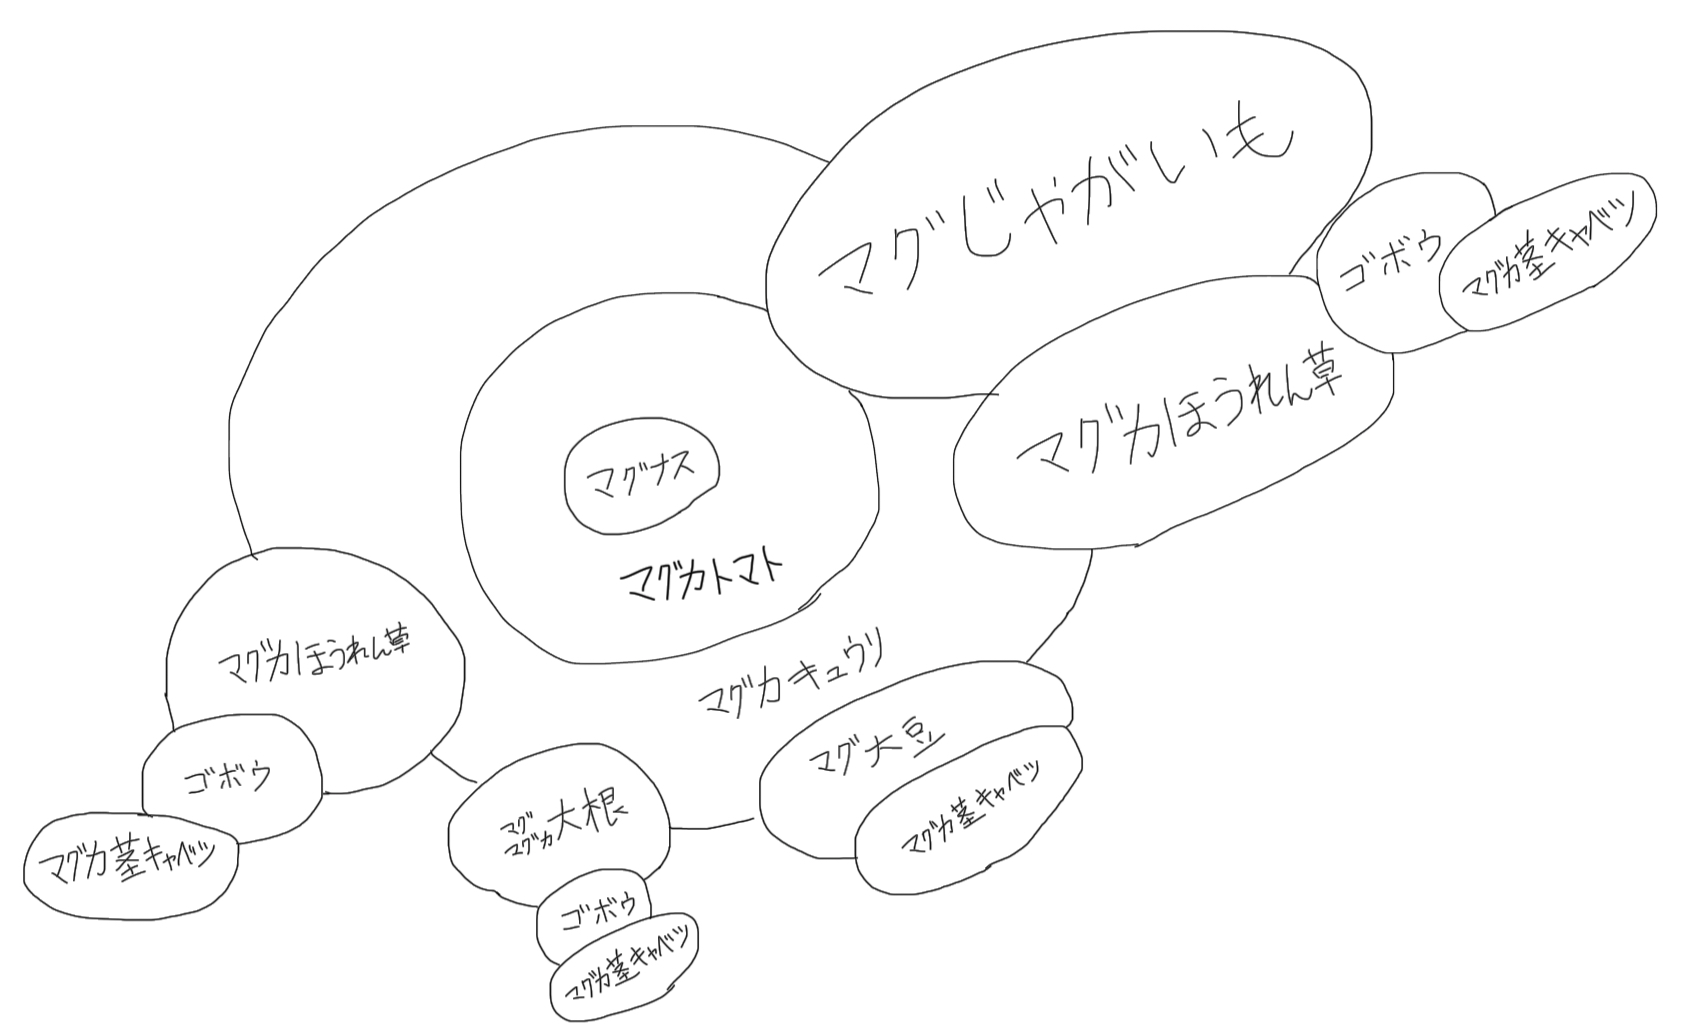 マグじゃがいも
ゴボウ
マグカ茎キャベツ
マグカほうれん草
マグナス
マグカトマト
マグカキュウリ
マグカほうれん草
ゴボウ
マグカ茎キャベツ
マグ
マグカ大根
ゴボウ
マグカ茎キャベツ
マグ大豆
マグカ茎キャベツ